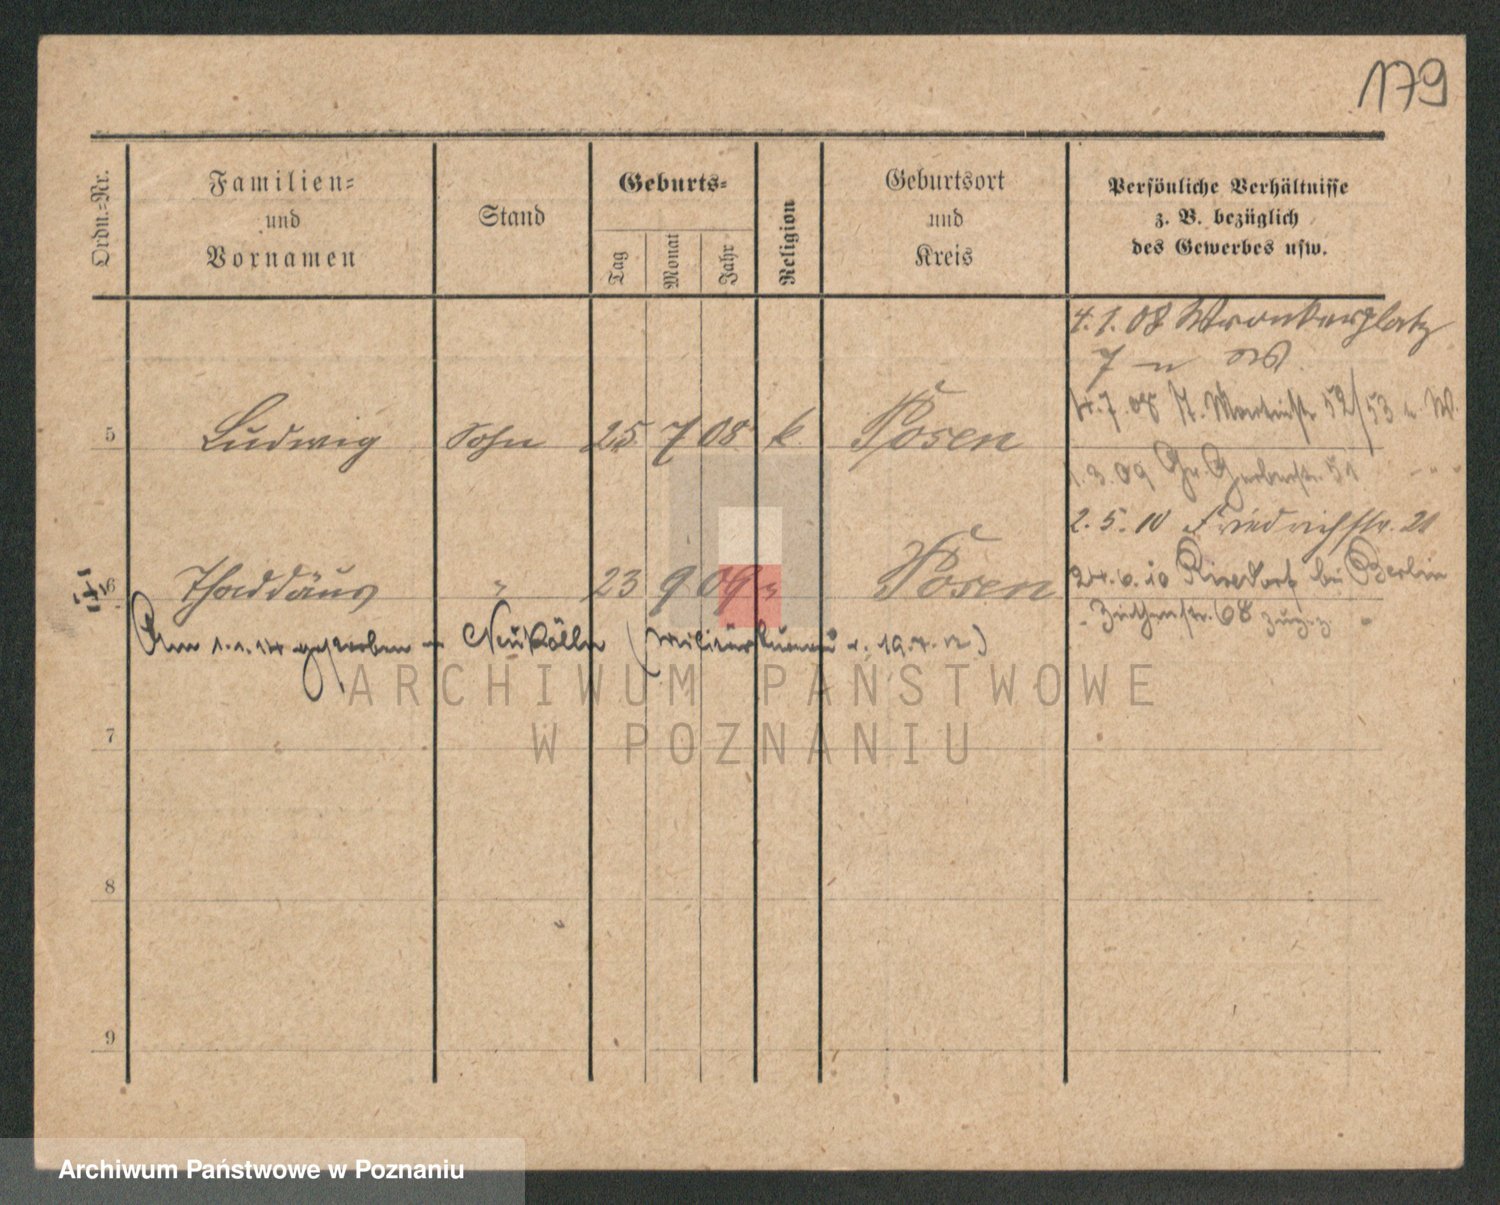 179
Ordn.-Nr.
Familien-
und
Vornamen
Stand
Geburts-
Tag
Monat
Jahr
Religion
Geburtsort
und
Kreis
Persönliche Verhältnisse
z. B. bezüglich
des Gewerbes usw.
4.1.08 Wronkerplatz
7
7.08 St. Martinstr. 52/53 u. W.
5 Ludwig Sohn 25 7 08 k. Posen
1.3.09 Gr. Gerberstr. 51
2.5.10 Friedrichstr. 21
6 Thaddäus " 23 9 09 " Posen
24.6.10 Rixdorf bei Berlin
Ziethenstr. 68
Am 1.1.14 gestorben Neukölln
7
8
9
ARCHIWUM PAŃSTWOWE
W POZNANIU
Archiwum Państwowe w Poznaniu